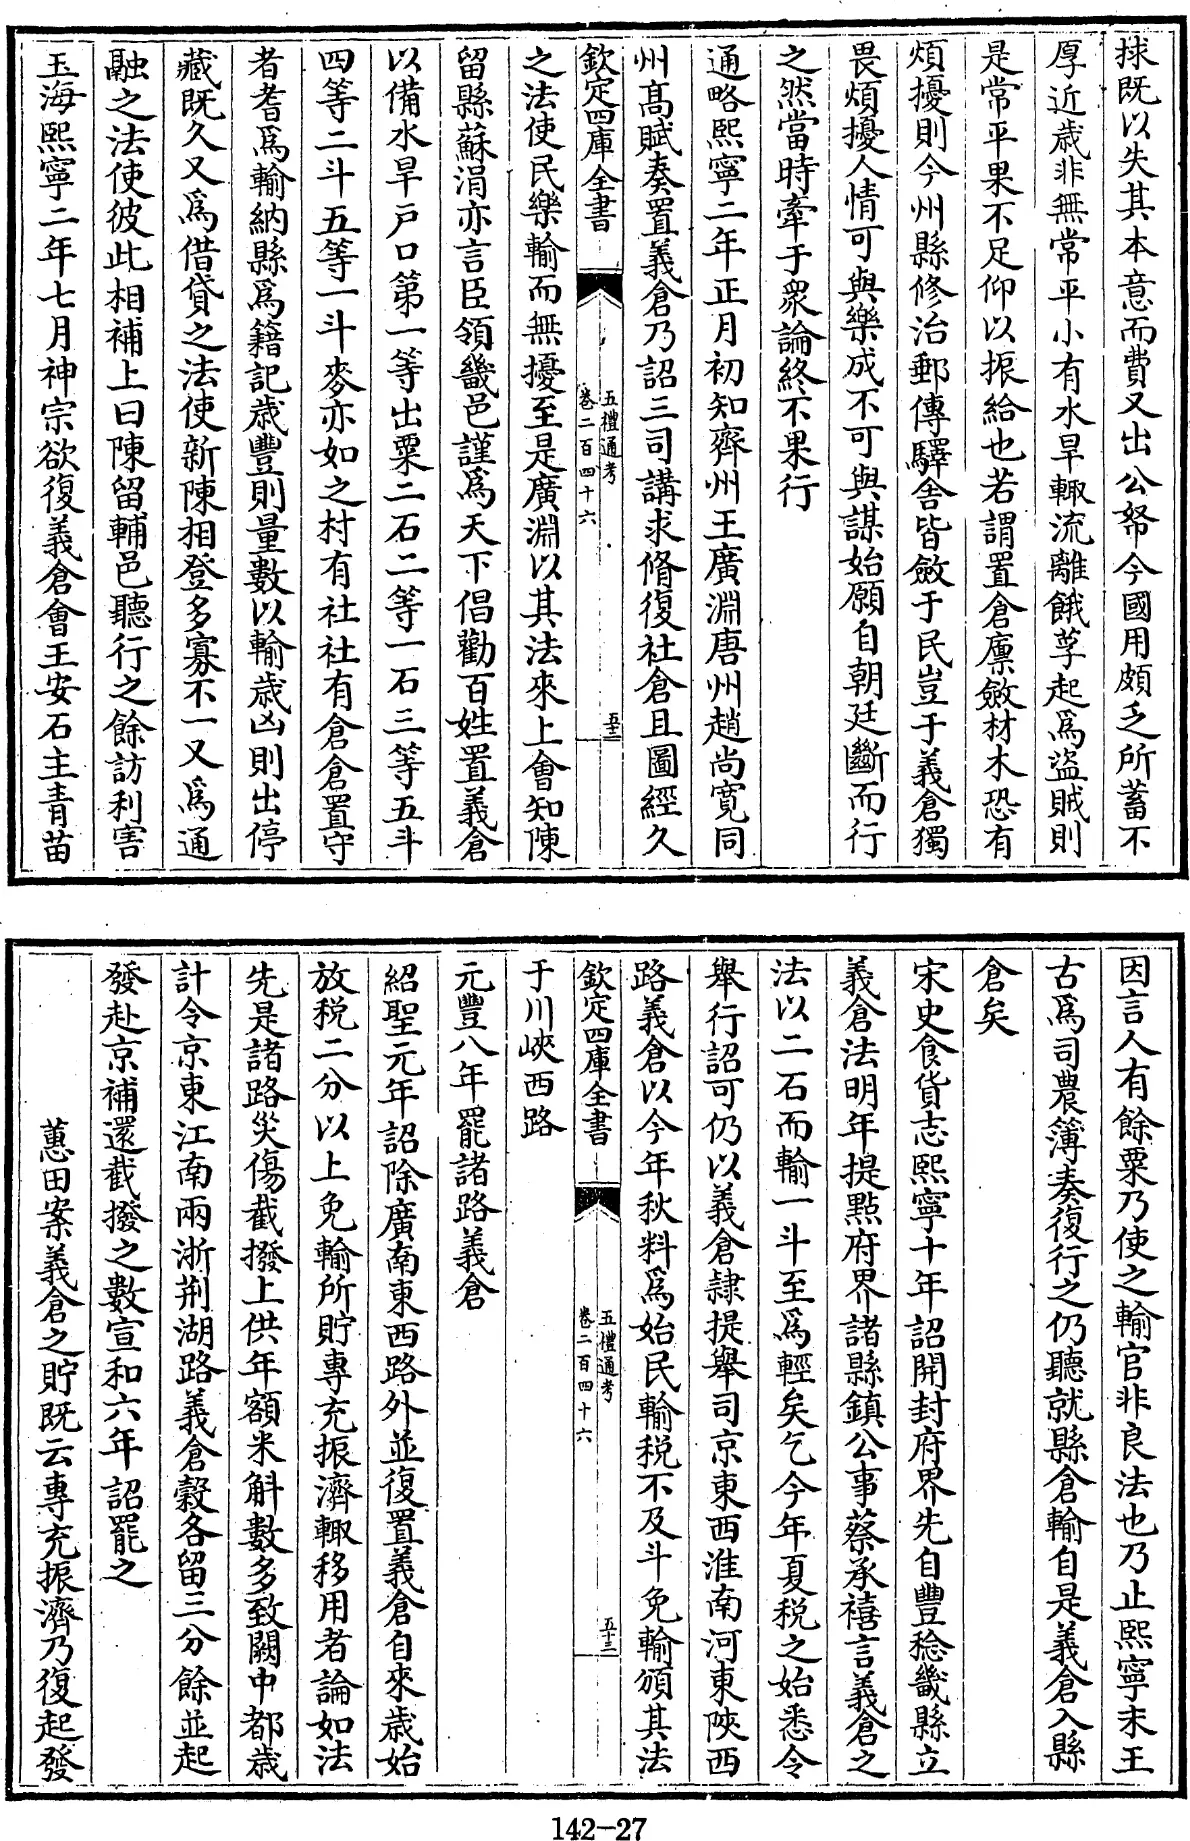 捄既以失其本意而費又出公帑今國用頗乏所蓄不
厚近歳非無常平小有水旱輙流離餓莩起爲盜賊則
是常平果不足仰以振給也若謂置倉廪斂材木恐有
煩擾則今州縣修治郵傳驛舎皆斂于民豈于義倉獨
畏煩擾人情可與樂成不可與謀始願自朝廷斷而行
之然當時牽于衆論終不果行
通略熙寧二年正月初知齊州王廣淵唐州趙尚寛同
州髙賦奏置義倉乃詔三司講求脩復社倉且圖經久
欽定四庫全書
五禮通考
卷二百四十六
五十二
之法使民樂輸而無擾至是廣淵以其法來上會知陳
留縣蘇涓亦言臣領畿邑謹爲天下倡勸百姓置義倉
以備水旱戸口第一等出粟二石二等一石三等五斗
四等二斗五等一斗麥亦如之村有社社有倉倉置守
者耆爲輸納縣爲籍記歳豐則量數以輸歳凶則出停
藏既久又爲借貸之法使新陳相登多寡不一又爲通
融之法使彼此相補上曰陳留輔邑聽行之餘訪利害
玉海熙寧二年七月神宗欲復義倉會王安石主青苗
因言人有餘粟乃使之輸官非良法也乃止熙寧末王
古爲司農簿奏復行之仍聽就縣倉輸自是義倉入縣
倉矣
宋史食貨志熙寧十年詔開封府界先自豐稔畿縣立
義倉法明年提點府界諸縣鎮公事蔡承禧言義倉之
法以二石而輸一斗至爲輕矣乞今年夏税之始悉令
舉行詔可仍以義倉隷提舉司京東西淮南河東陜西
路義倉以今年秋料爲始民輸税不及斗免輸頒其法
欽定四庫全書
五禮通考
卷二百四十六
五十三
于川峽西路
元豐八年罷諸路義倉
紹聖元年詔除廣南東西路外並復置義倉自來歳始
放税二分以上免輸所貯專充振濟輙移用者論如法
先是諸路災傷截撥上供年額米斛數多致闕中都歳
計令京東江南兩浙荆湖路義倉穀各留三分餘並起
發赴京補還截撥之數宣和六年詔罷之
蕙田案義倉之貯既云專充振濟乃復起發
142-27